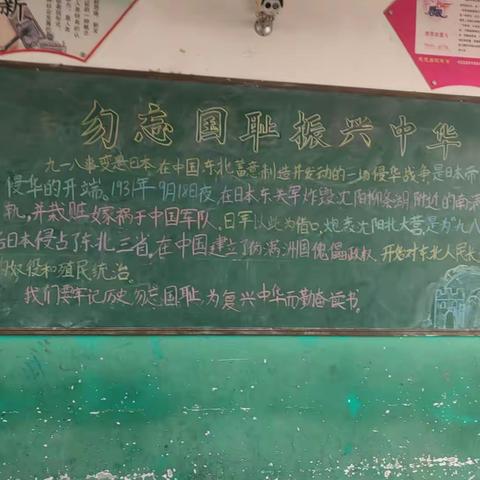 勿忘国耻振兴中华
九一八事变是日本在中国东北蓄意制造并发动的一场侵华战争是日本帝
侵华的开端。1931年9月18日夜在日本东关军炸毁沈阳柳条湖附近的南满
轨,并栽赃嫁祸于中国军队,日军以此为借口,炮轰沈阳北大营是为"九八
后日本侵占了东北三省,在中国建立了伪满洲国傀儡政权,开始对东北人民长
的奴役和殖民统治。
我们要牢记历史勿忘国耻,为复兴中华而勤奋读书。
新